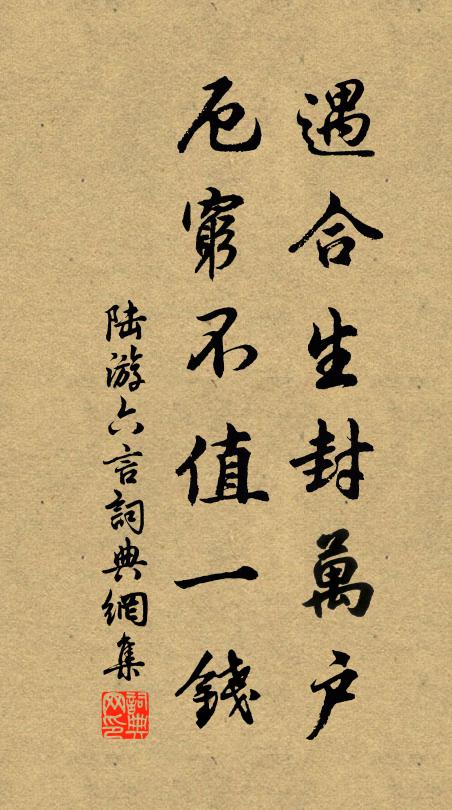 遇合生封萬户
厄窮不值一錢
陆游六言詞典網集
詞典网印